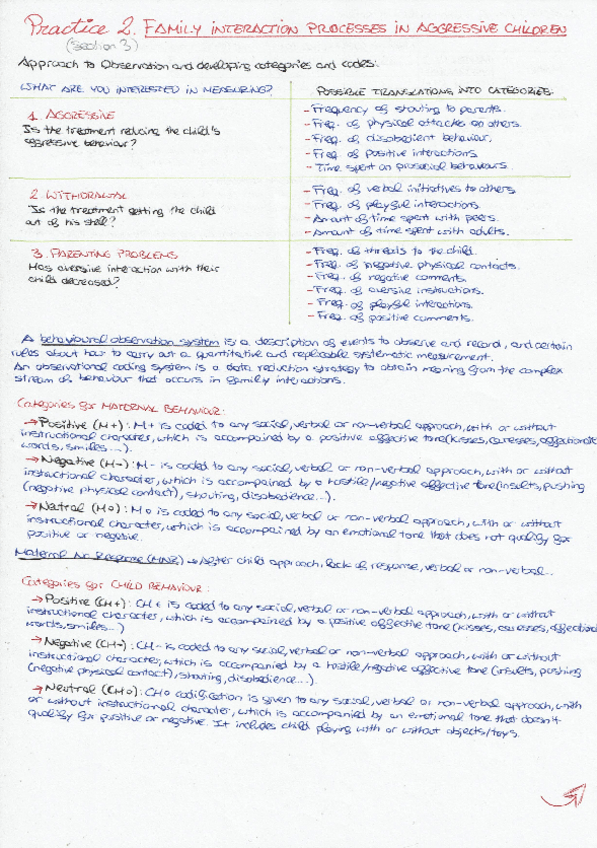 Practice 2. FAMILY INTERACTION PROCESSES IN AGGRESSIVE CHILDREN
(Section 3)
Approach to Observation and developing categories and codes:
WHAT ARE YOU INTERESTED IN MEASURING?
POSSIBLE TRANSLATIONS INTO CATEGORIES:
1. AGGRESSIVE
Is the treatment reducing the child's
aggressive behaviour?
- Frequency of shouting to parents.
- Freq. of physical attacks on others.
- Freq. of disobedient behaviour.
- Freq. of positive interactions
- Time spent on prosocial behaviours.
2. WITHDRAWAL
Is the treatment getting the child
out of his shell?
- Freq. of verbal initiatives to others.
- Freq. of playful interactions.
- Amount of time spent with peers.
- Amount of time spent with adults.
3. PARENTING PROBLEMS
Has aversive interaction with their
child decreased?
- Freq. of threats to the child.
- Freq. of negative physical contacts.
- Freq. of negative comments.
- Freq. of aversive instructions.
- Freq. of playful interactions.
- Freq. of positive comments.
A behavioural observation system is a description of events to observe and record, and certain
rules about how to carry out a quantitative and replicable systematic measurement.
An observational coding system is a data reduction strategy to obtain meaning from the complex
stream of behaviour that occurs in family interactions.
Categories for MATERNAL BEHAVIOUR:
→ Positive (M+): M+ is coded to any social, verbal or non-verbal approach, with or without
instructional character, which is accompained by a positive affective tone (kisses, caresses, affectionate
words, smiles...).
→ Negative (M-): M- is coded to any social, verbal or non-verbal approach, with or without
instructional character, which is accompained by a hostile/negative affective tone (insults, pushing
(negative physical contact), shouting, disobedience...).
→ Neutral (Mo): Mo is coded to any social, verbal or non-verbal approach, with or without
instructional character, which is accompained by an emotional tone that does not qualify for
positive or negative.
Maternal No Response (MNR) → After child approach, lack of response, verbal or non-verbal...
Categories for CHILD BEHAVIOUR:
→ Positive (CH+): CH+ is coded to any social, verbal or non-verbal approach, with or without
instructional character, which is accompained by a positive affective tone (kisses, caresses, affectionate
words, smiles...)
→ Negative (CH-): CH- is coded to any social, verbal or non-verbal approach, with or without
instructional character, which is accompained by a hostile/negative affective tone (insults, pushing
(negative physical contact), shouting, disobedience...).
→ Neutral (CHo): CHo codification is given to any social, verbal or non-verbal approach, with
or without instructional character, which is accompained by an emotional tone that doesn't
qualify for positive or negative. It includes child playing with or without objects/toys.